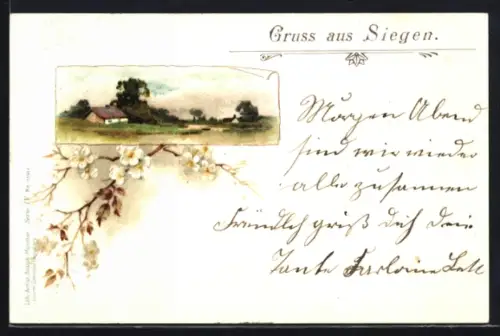 Gruss aus Siegen.
Morgen Abend
sind wir wieder
alle zusamen
Freundlich griß dich dein
Tante